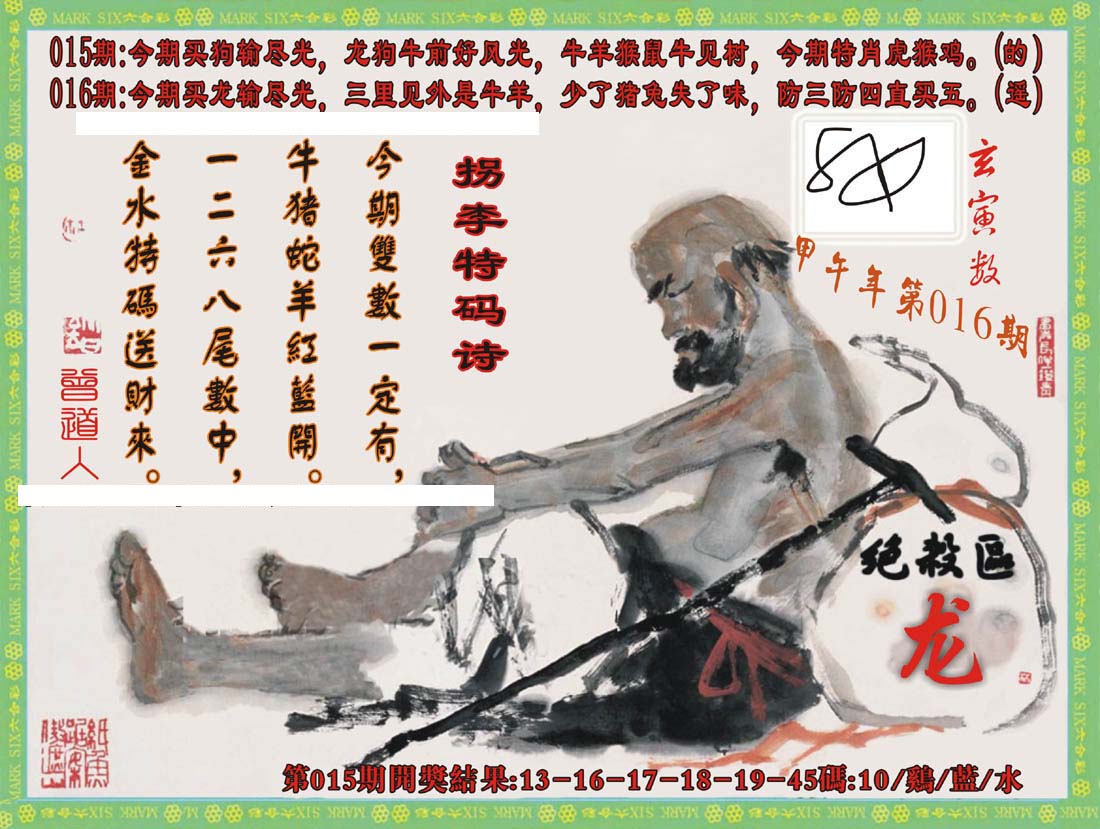 MARK SIX六合彩
015期:今期买狗输尽光，龙狗牛前好风光，牛羊猴鼠牛见树，今期特肖虎猴鸡。(的)
016期:今期买龙输尽光，三里见外是牛羊，少了猪兔失了味，防三防四直买五。(遥)
玄寅数
甲午年第016期
拐李特码诗
今期雙數一定有，
牛猪蛇羊紅藍開。
一二六八尾數中，
金水特碼送財來。
曾道人
绝殺區
龙
第015期開獎結果:13-16-17-18-19-45碼:10/鷄/藍/水